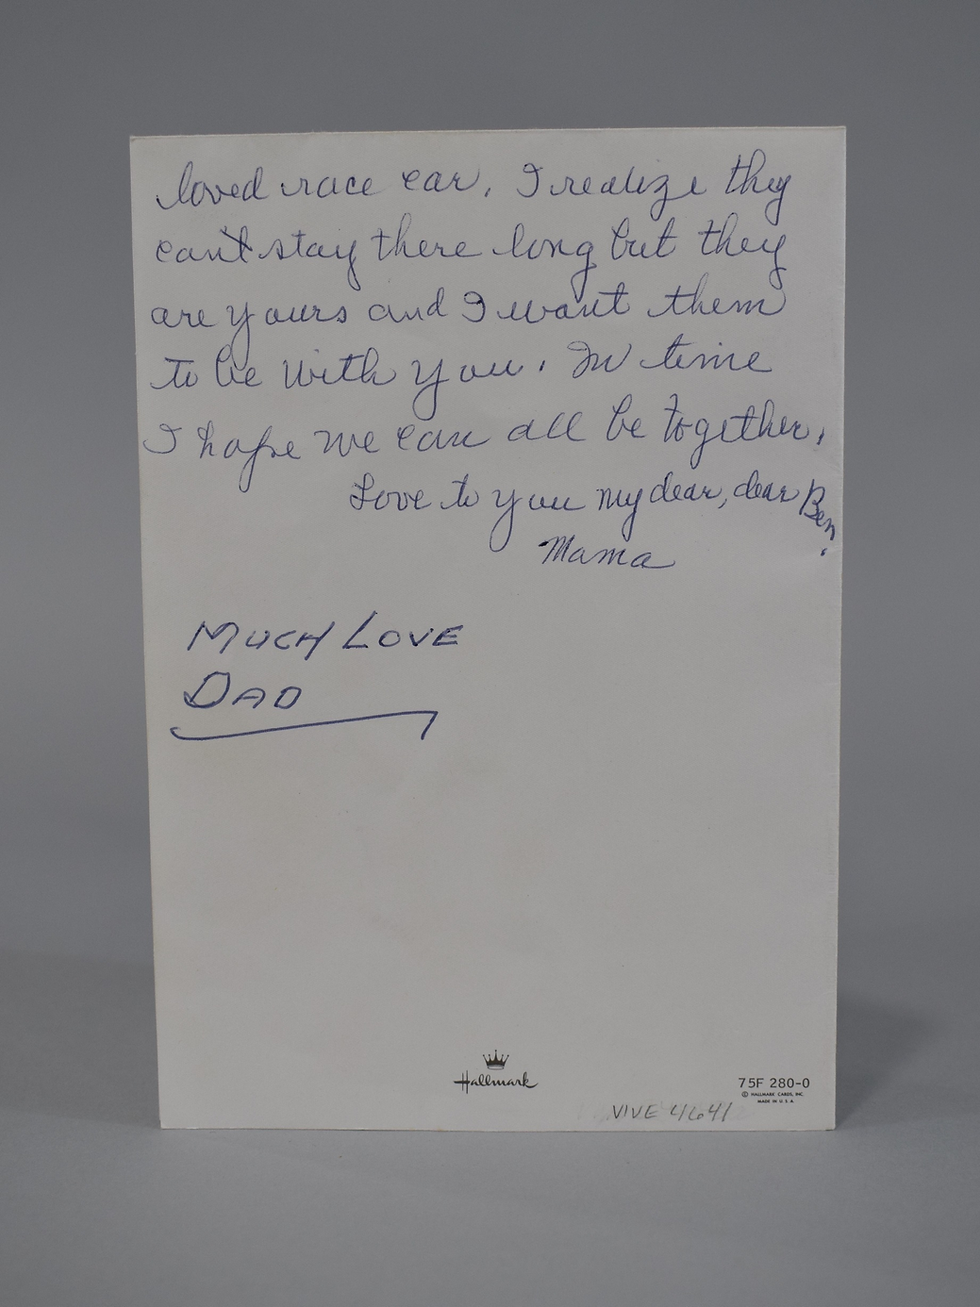 loved race car. I realize they
can't stay there long but they
are yours and I want them
to be with you. In time
I hope we can all be together.
Love to you my dear, dear Ben.
Mama
MUCH LOVE
DAD
Hallmark
75F 280-0
© HALLMARK CARDS, INC.
MADE IN U.S.A.
VIVE 4641